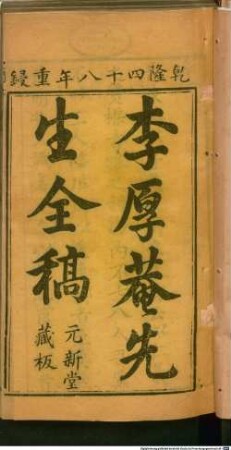 乾隆四十八年重鐫
李厚菴先
生全稿
元新堂
藏板